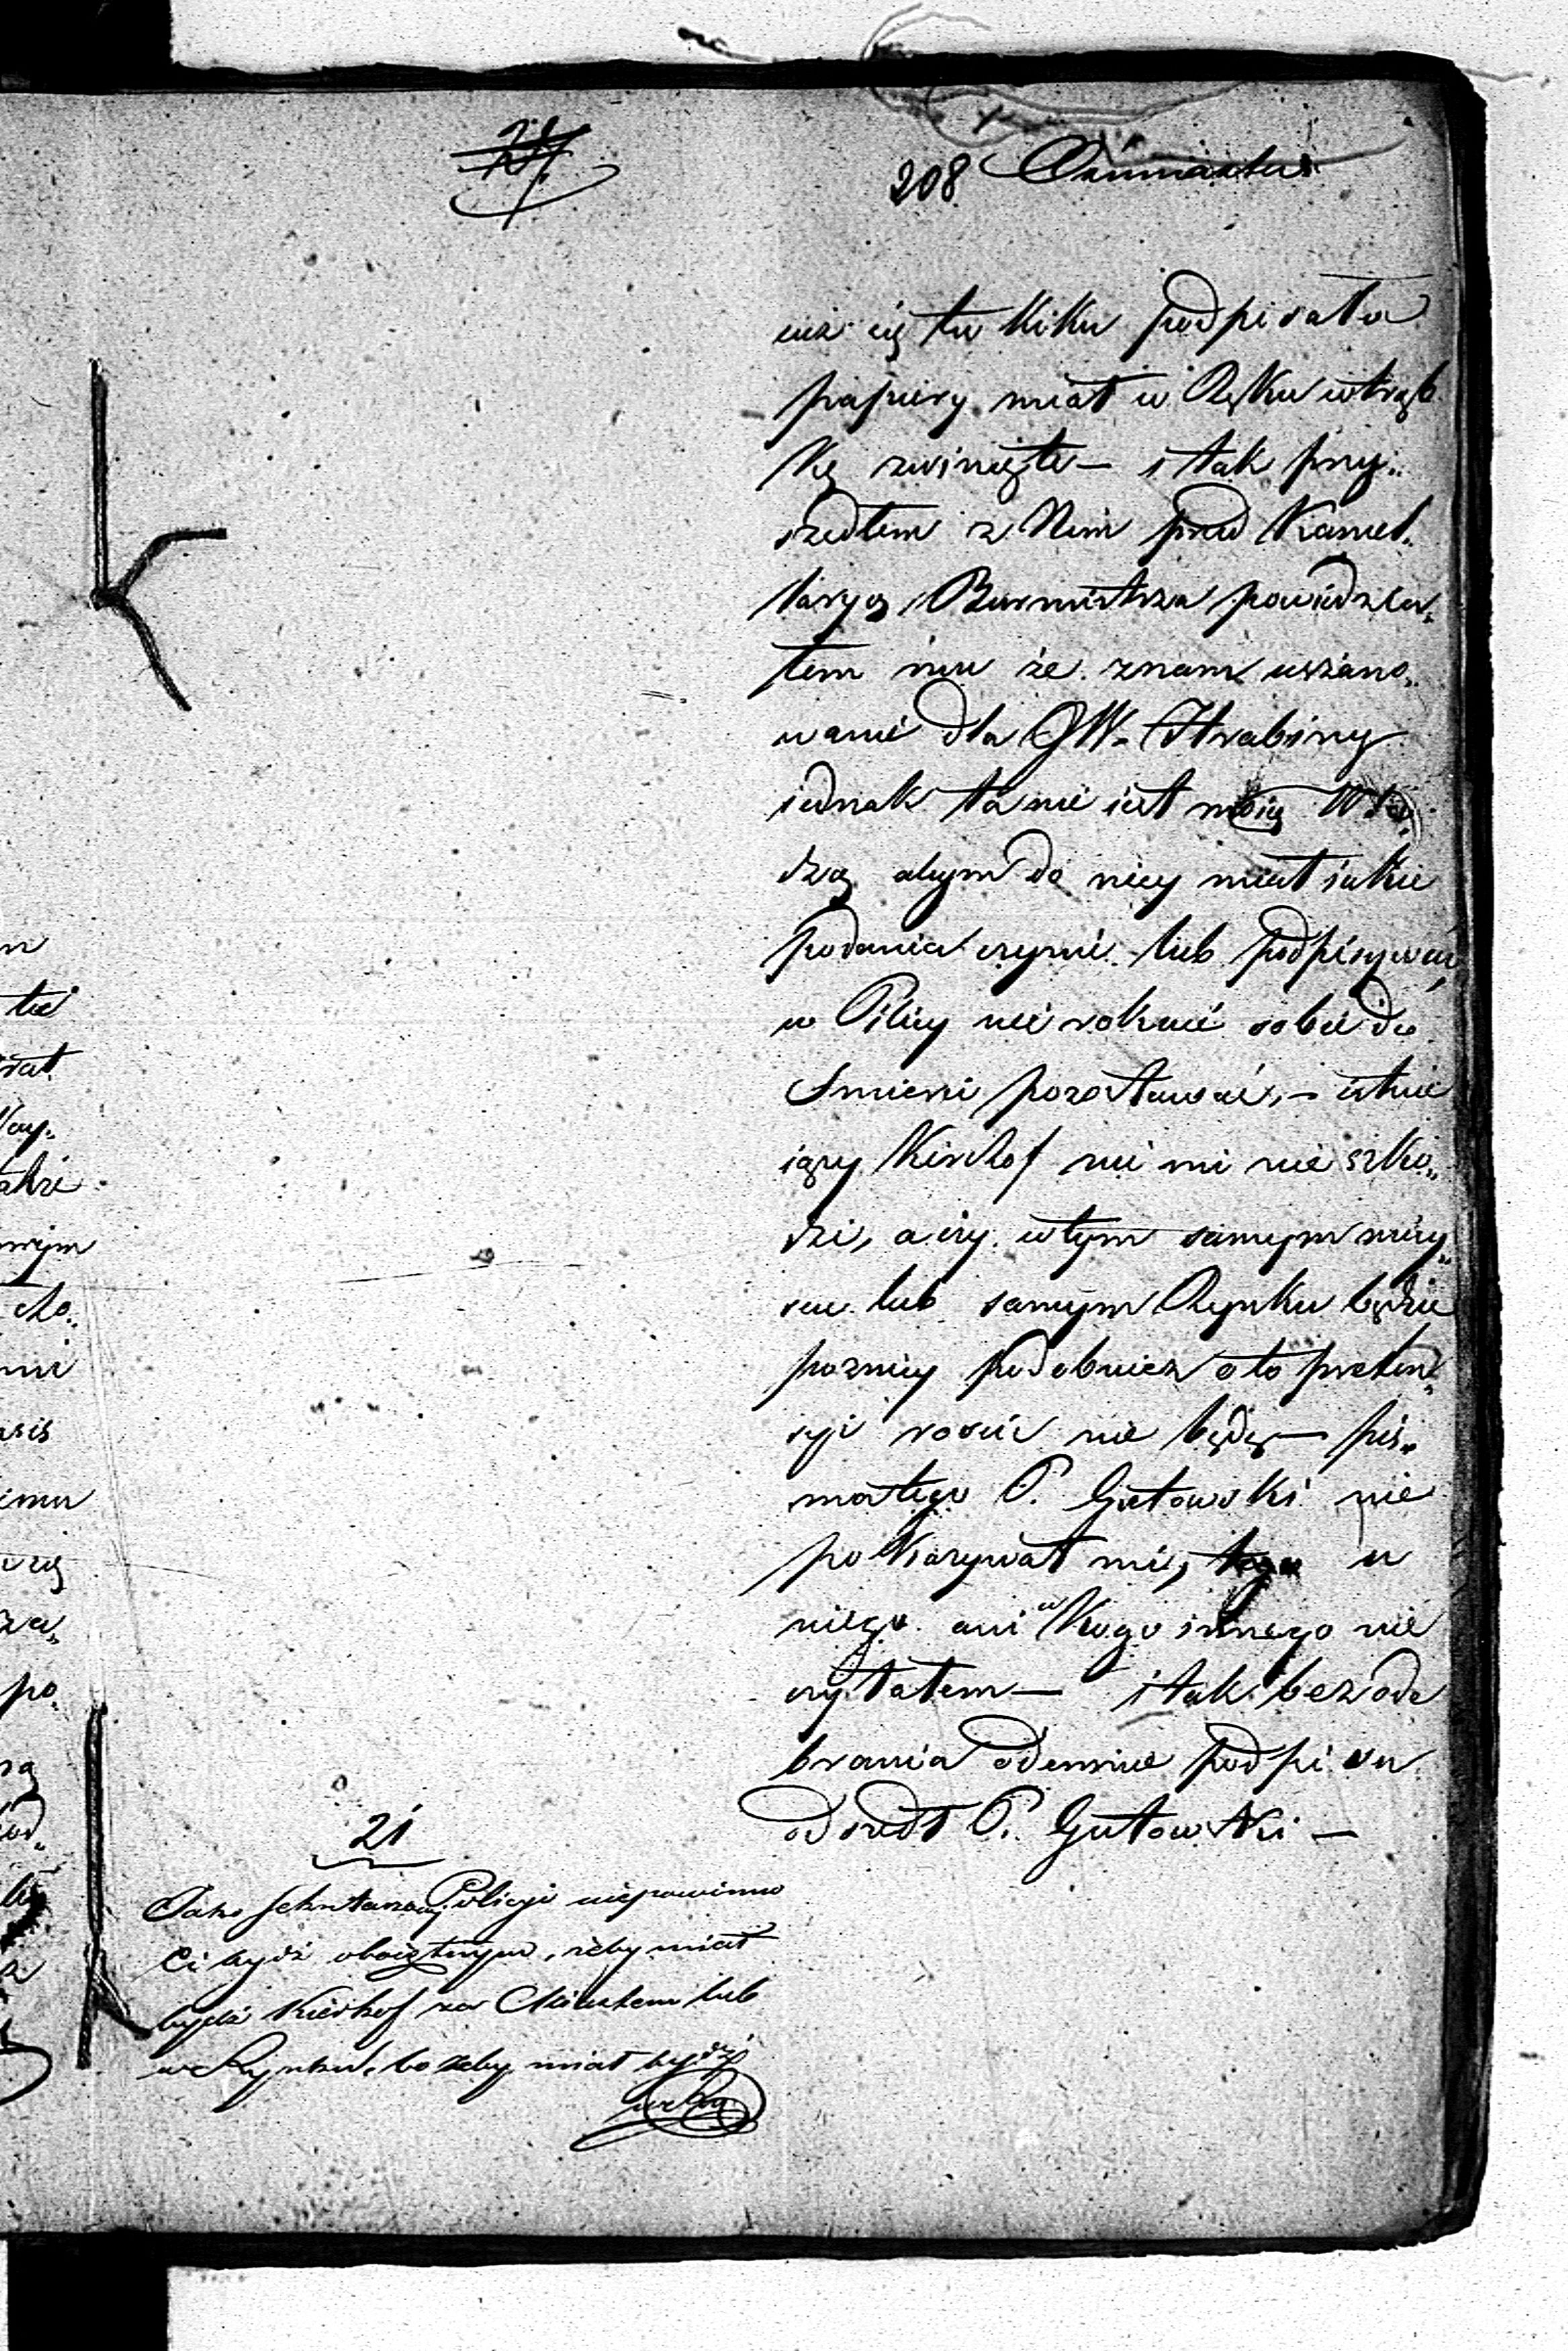 208
już się tu Kilku podpisało
papiery miał w Ręku w trąb
kę zwinięte — i tak przy„
szedłem z Nim przed Kancel„
laryą Burmistrza powiedzia„
łem mu że znam uszano„
wanie dla JW. Hrabiny
iednak ta nie iest moią Wła„
dzą abym do niey miał iakie
podania czynić lub podpisywać,
w Pilicy nie rokuię sobie do
Śmierci pozostawać, —
Kirchof mi nie szko„
dzi, a czy w tym samym miey„
scu lub samym Rynku będzie
pozniey podobnież o to preten„
syi rościć nie będę — pis„
ma tego P. Gutowski nie
pokazywał mi, u
niego ani u Kogo innego nie
czytałem — i tak bez ode
brania odemnie podpisu
odszedł P. Gutowski —
21
Jako Sekretarzowi Policyi niepowinno
Ci bydź oboiętnym, żeby miał
bydź Kirhof za Miastem lub
w Rynku, bo żeby miał bydź